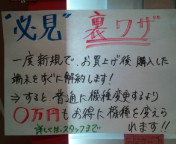 "必見" 裏ワザ
一度新規で、お買上げ後 購入した
端末をすぐに解約します!
⇒すると、普通に機種変更するより
〇万円もお得に機種を変えら
れます!!
詳しくは、スタッフまで